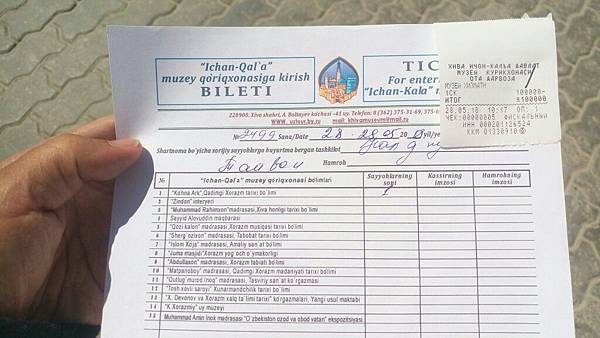 "Ichan-Qal'a"
muzey qòriqxonasiga kirish
BILETI
TIC
For enter
"Ichan-Kala"
220900. Xiva shahri, A. Boltayev ko'chasi -41 uy. Telefon: 8 (362) 375-31-69, 375-
www. uzivuz.by.ru mail khivamuseum@mail.ru
№ 2499 Sana/Date 28 - 28.05 20 yil/ye
Shartnoma bo'yicha xorijiy sayyohlarga buyurtma bergan tashkilot
Тайвон Hamroh
№ "Ichan-Qal'a" muzey qòriqxonasi bòlimlari Sayyohlarning soni Kassirning imzosi Hamrohning imzosi
1 "Ko'hna Ark",Qadimgi Xorazm tarixi bo'limi 1
2 "Zindon" interyeri
3 "Muhammad Rahimxon"madrasasi,Xiva honligi tarixi bo'limi
4 Sayyid Alovuddin maqbarasi
5 "Qozi kalon" madrasasi,Xorazm musiqasi tarixi bo'limi
6 "Sherg'ozixon" madrasasi, Tabobat tarixi bo'limi
7 "Islom Xòja" madrasasi, Amaliy san'at bo'limi
8 "Juma masjidi"Xorazm yog'och o'ymakorligi
9 "Abdullaxon" madrasasi, Xorazm tabiati bo'limi
10 "Matpanoboy" madrasasi, Qadimgi Xorazm madaniyati tarixi bo'limi
11 "Qutlug'murod inoq" madrasasi, Tasviriy san'at ko'rgazmasi
12 "Tosh xovli saroyi" Xunarmandchilik tarixi bo'limi
13 "X. Devonov va Xorazm xalq ta'limi tarixi" ko'rgazmalari, Yangi usul maktabi
14 "K.Xorazmiy" uy muzeyi
15 Muhammad Amin Inok madrasasi "O'zbekiston ozod va obod vatan" ekspozitsiyasi
ХИВА ИЧОН-КАЛЪА ДАВЛАТ
МУЗЕЙ КУРИКХОНАСИ
ОТА ДАРВОЗА
МУЗЕЙ ХИЗМАТИ
1СК 100000-
ИТОГ ≡100000-
28.05.18 10:17 ОП: 1
ЧЕК:00000005 ФИСКАЛЬНЫЙ
ИНН 000201126524
ККМ 01330910